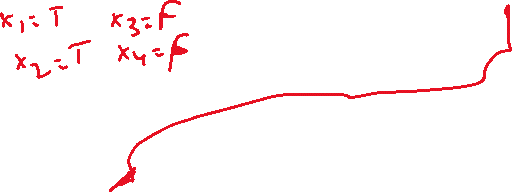 x1=T x3=F
x2=T x4=F